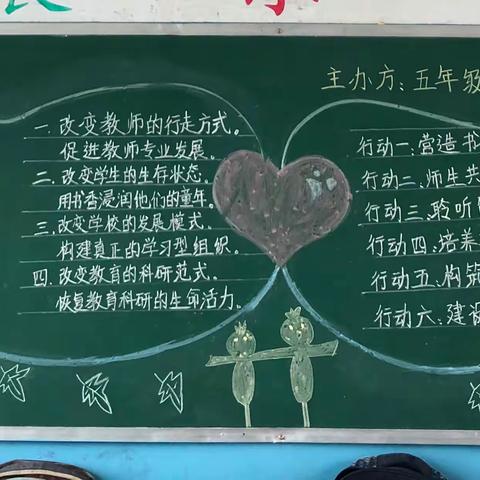 主办方：五年级
一.改变教师的行走方式。
促进教师专业发展。
二.改变学生的生存状态。
用书香浸润他们的童年。
三.改变学校的发展模式。
构建真正的学习型组织。
四.改变教育的科研范式。
恢复教育科研的生命活力。
行动一：营造书
行动二：师生共
行动三：聆听
行动四：培养
行动五：构筑
行动六：建设